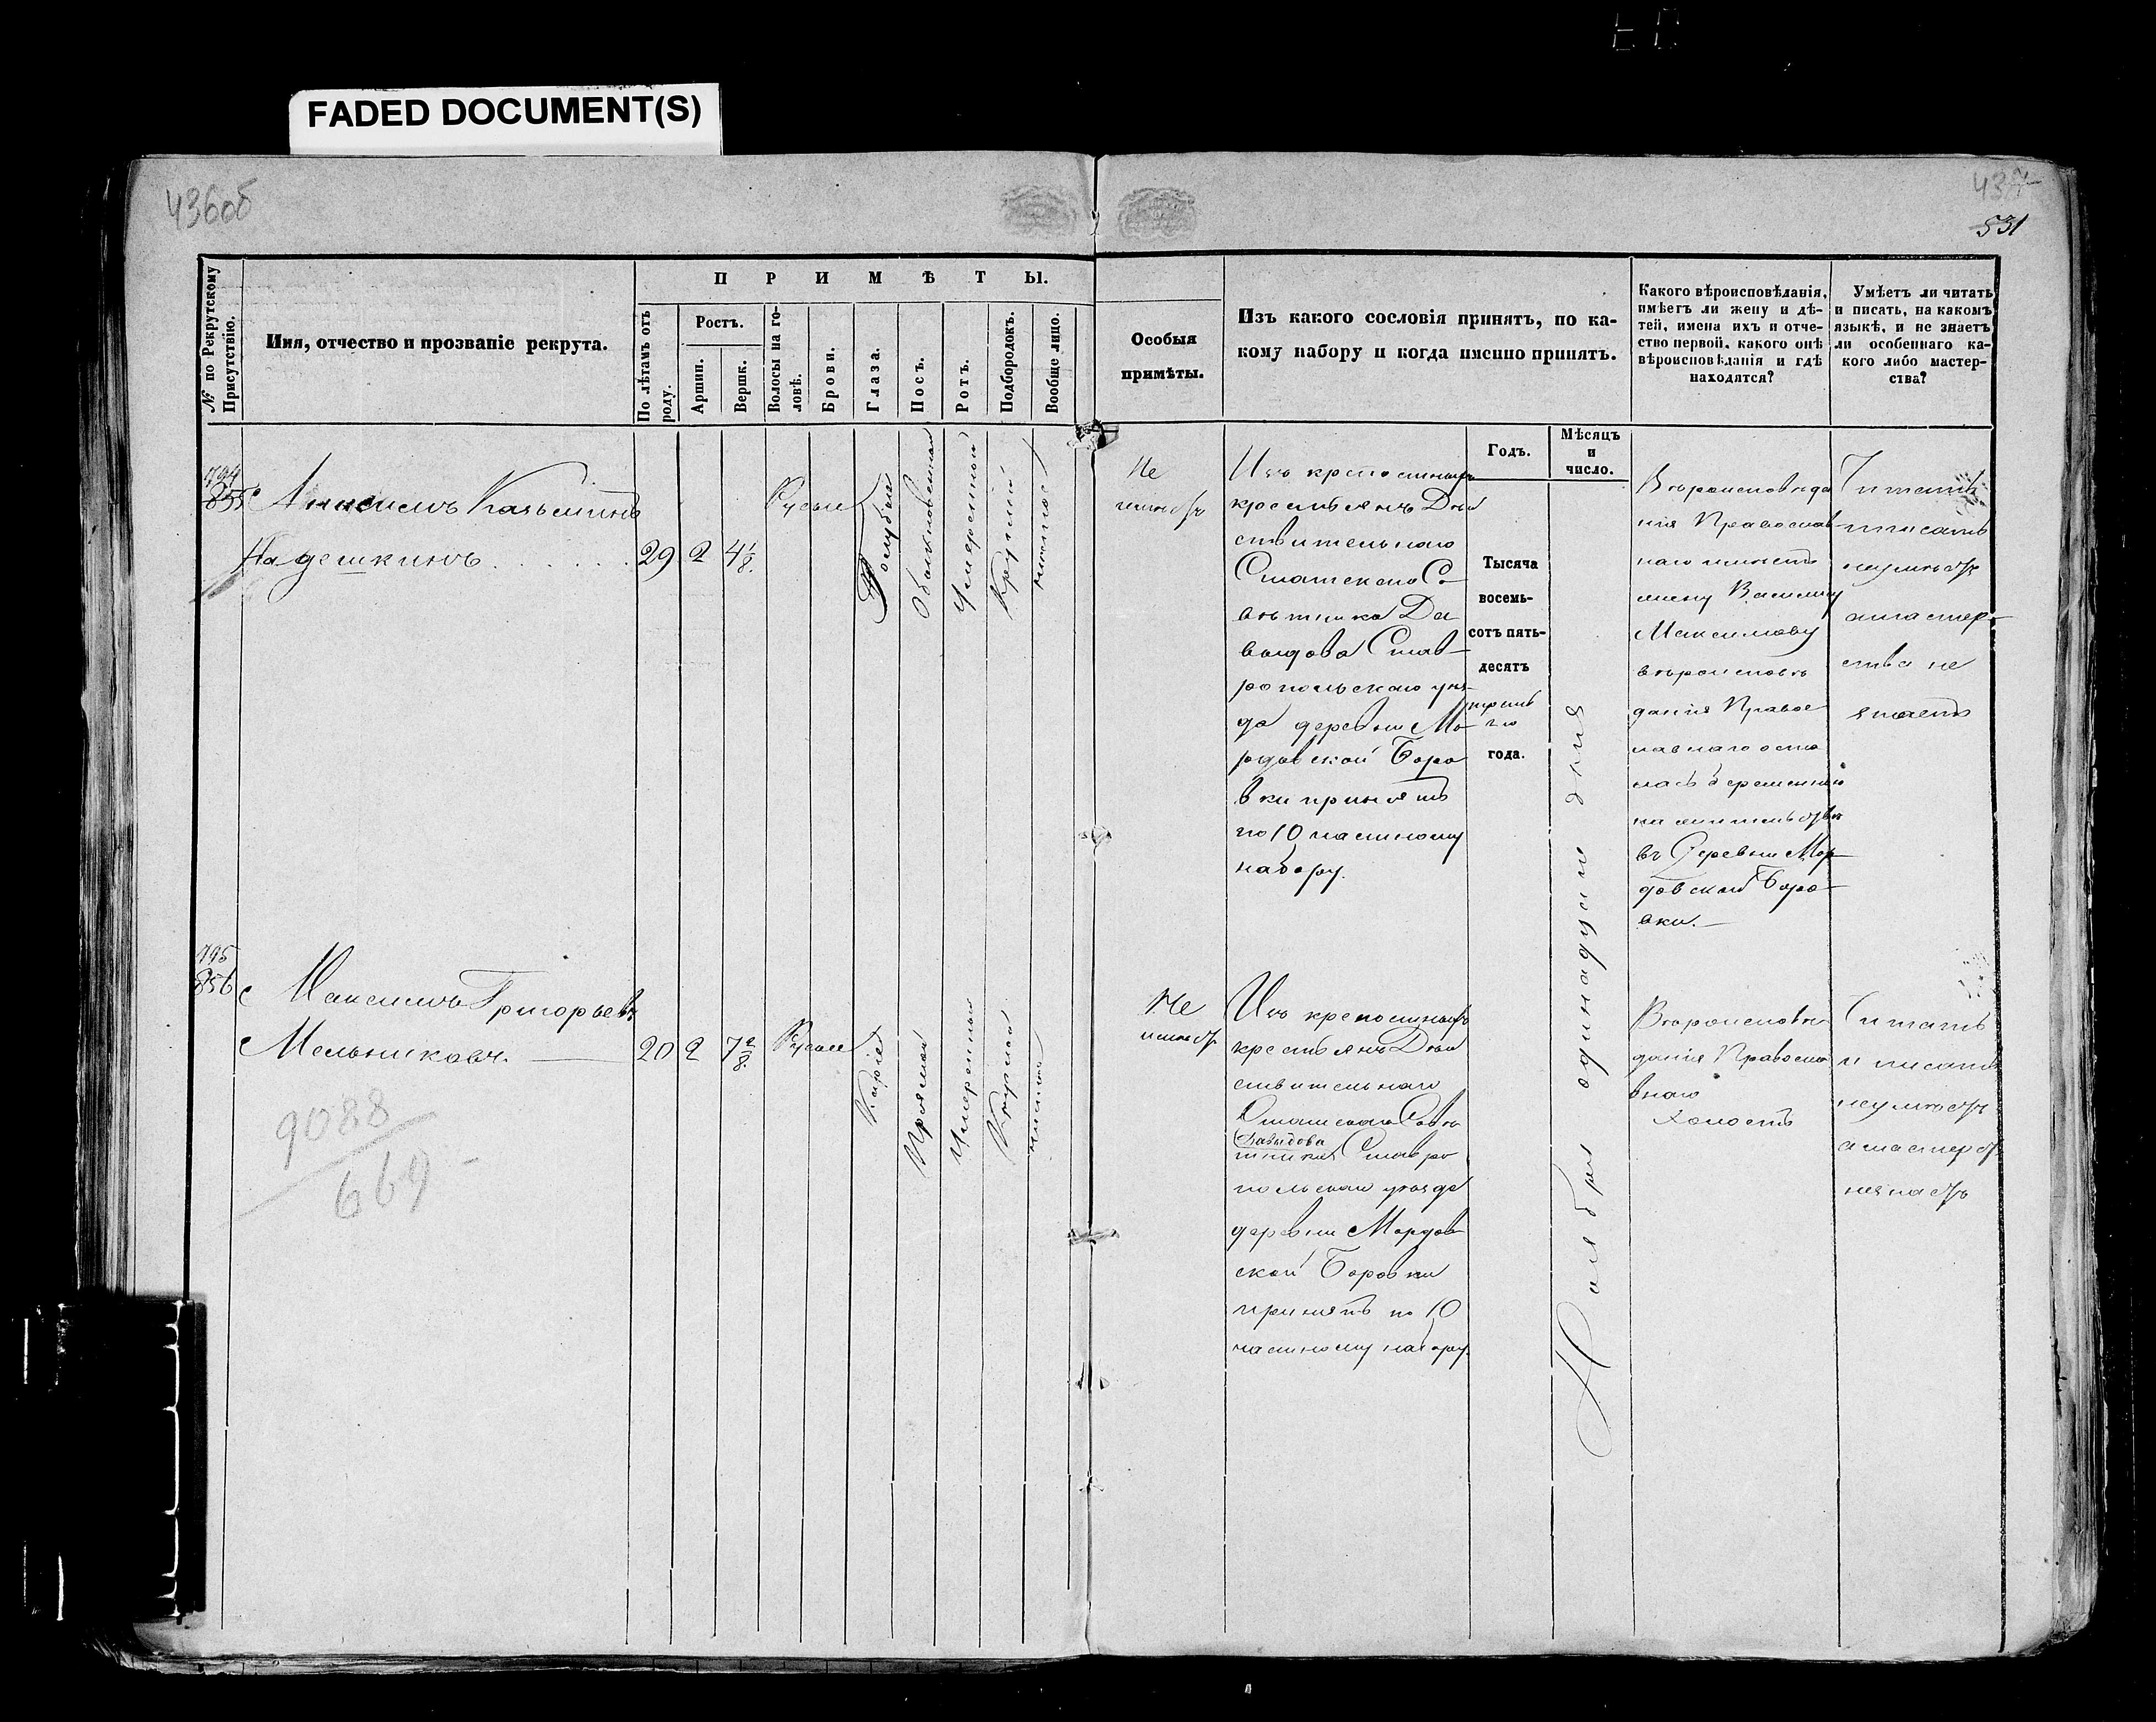 FADED DOCUMENT(S)
436об
437
531
№ по Рекрутскому Присутствію.
Имя, отчество и прозваніе рекрута.
ПРИМѢТЫ.
По лѣтамъ отъ роду.
Ростъ.
Аршин.
Вершк.
Волосы на головѣ.
Брови.
Глаза.
Носъ.
Ротъ.
Подбородокъ.
Вообще лицо.
Особыя
примѣты.
Изъ какого сословія принятъ, по ка-
кому набору и когда именно принятъ.
Какого вѣроисповѣданія,
имѣетъ ли жену и дѣ-
тей, имена ихъ и отче-
ство первой, какого онѣ
вѣроисповѣданія и гдѣ
находятся?
Умѣетъ ли читать
и писать, на какомъ
языкѣ, и не знаетъ
ли особеннаго ка-
кого либо мастер-
ства?
Годъ.
Мѣсяцъ
и
число.
794
855
Анисимъ Козьминъ
Надешкинъ
29
2
4 1/8
Русые
Голубые
Обыкновенный
Умеренный
Круглый
чистое
Не
имѣетъ
Изъ крепосныхъ
крестьянъ Дѣй
ствительнаго
Статскаго Со-
вѣтника Да
выдова Став-
ропольскаго уѣз-
да деревни Мо-
рдовской Боро
вки принятъ
по 10 частному
набору.
Тысяча
восемь-
сотъ пять-
десятъ
третья
го
года.
Ноября одинадцати дня
Вѣроисповѣда
нія Православ
наго имѣетъ
жену Василису
Максимову
вѣроисповѣ
данія Правос
лавнаго оста
лась беременною
на жительствѣ
въ Деревни Мор-
довской Боро-
вки.
Читать
писать
неумѣетъ
амастер-
ства не
знаетъ
795
856
Максимъ Григорьевъ
Мельниковъ.
20
2
7 2/8
Русые
Каріе
Прямой
Умеренный
Круглой
чистое
Не
имѣетъ
Изъ крепосныхъ
крестьянъ Дѣй
ствительнаго
Статскаго Совѣ
Давыдова
тника Ставро
польскаго уѣзда
деревни Мордов
ской Боровки
принятъ по 10
частному набору.
Вѣроисповѣ
данія Правосла
внаго
холостъ
Читать
и писать
неумѣетъ
амастерст
незнаетъ
9088
669